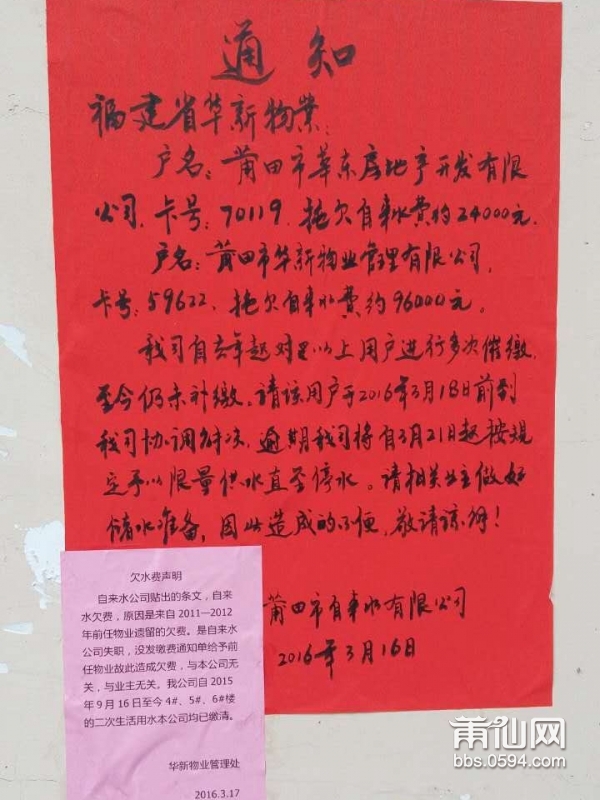 通知
福建省华新物业:
户名:莆田市华东房地产开发有限
公司,卡号:70119,拖欠自来水费约24000元.
户名:莆田市华新物业管理有限公司,
卡号:59622,拖欠自来水费约96000元。
我司自去年起对以上用户进行多次催缴,
至今仍未补缴。请该用户于2016年3月18日前到
我司协调解决,逾期我司将自3月21日起按规
定予以限量供水直至停水。请相关业主做好
储水准备,因此造成的不便,敬请谅解!
莆田市自来水有限公司
2016年3月16日
欠水费声明
自来水公司贴出的条文,自来
水欠费,原因是来自2011—2012
年前任物业遗留的欠费。是自来水
公司失职,没发缴费通知单给予前
任物业故此造成欠费,与本公司无
关,与业主无关。我公司自2015
年9月16日至今4#、5#、6#楼
的二次生活用水本公司均已缴清。
华新物业管理处
2016.3.17
莆仙网
bbs.0594.com